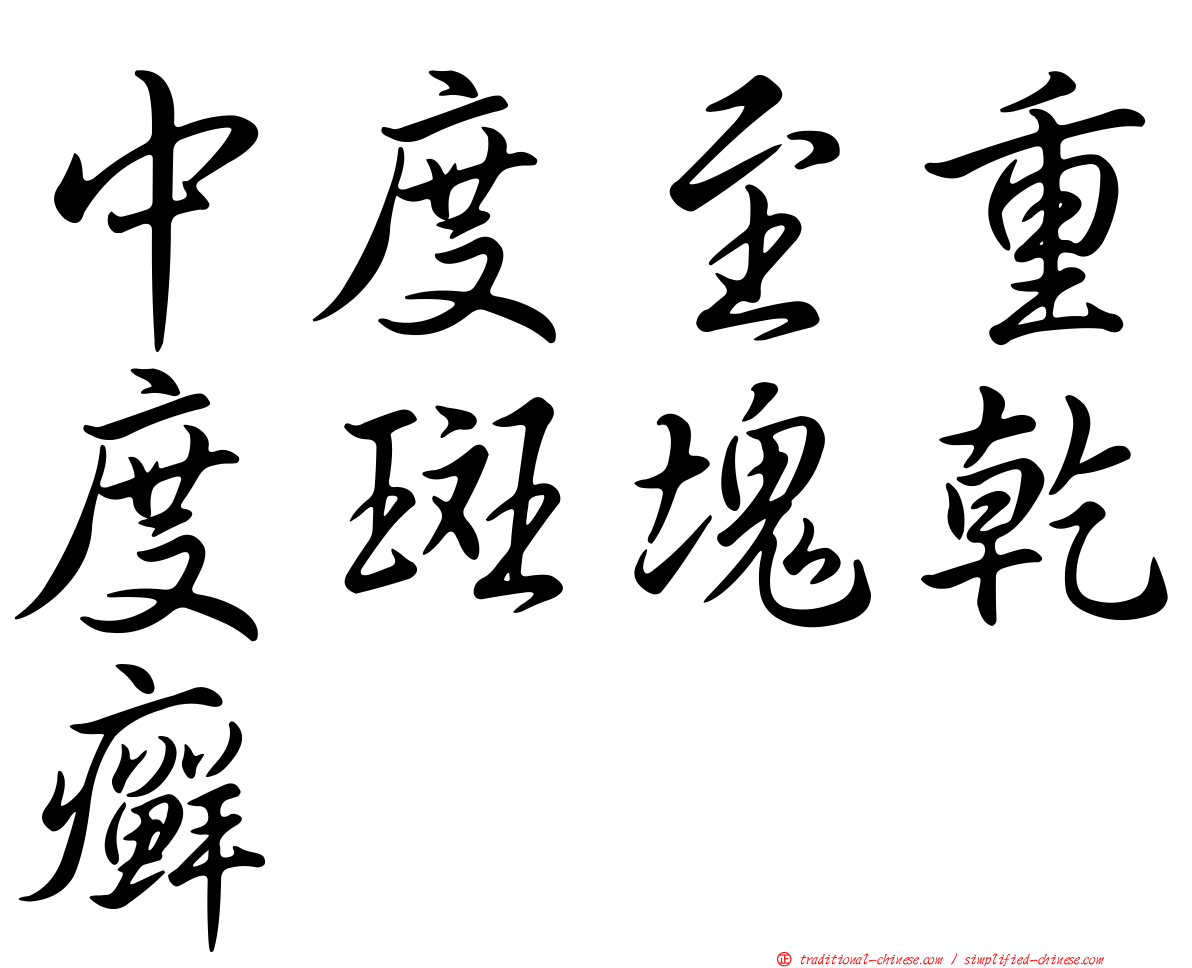 中度至重
度斑塊乾
癬
正 traditional-chinese.com / simplified-chinese.com